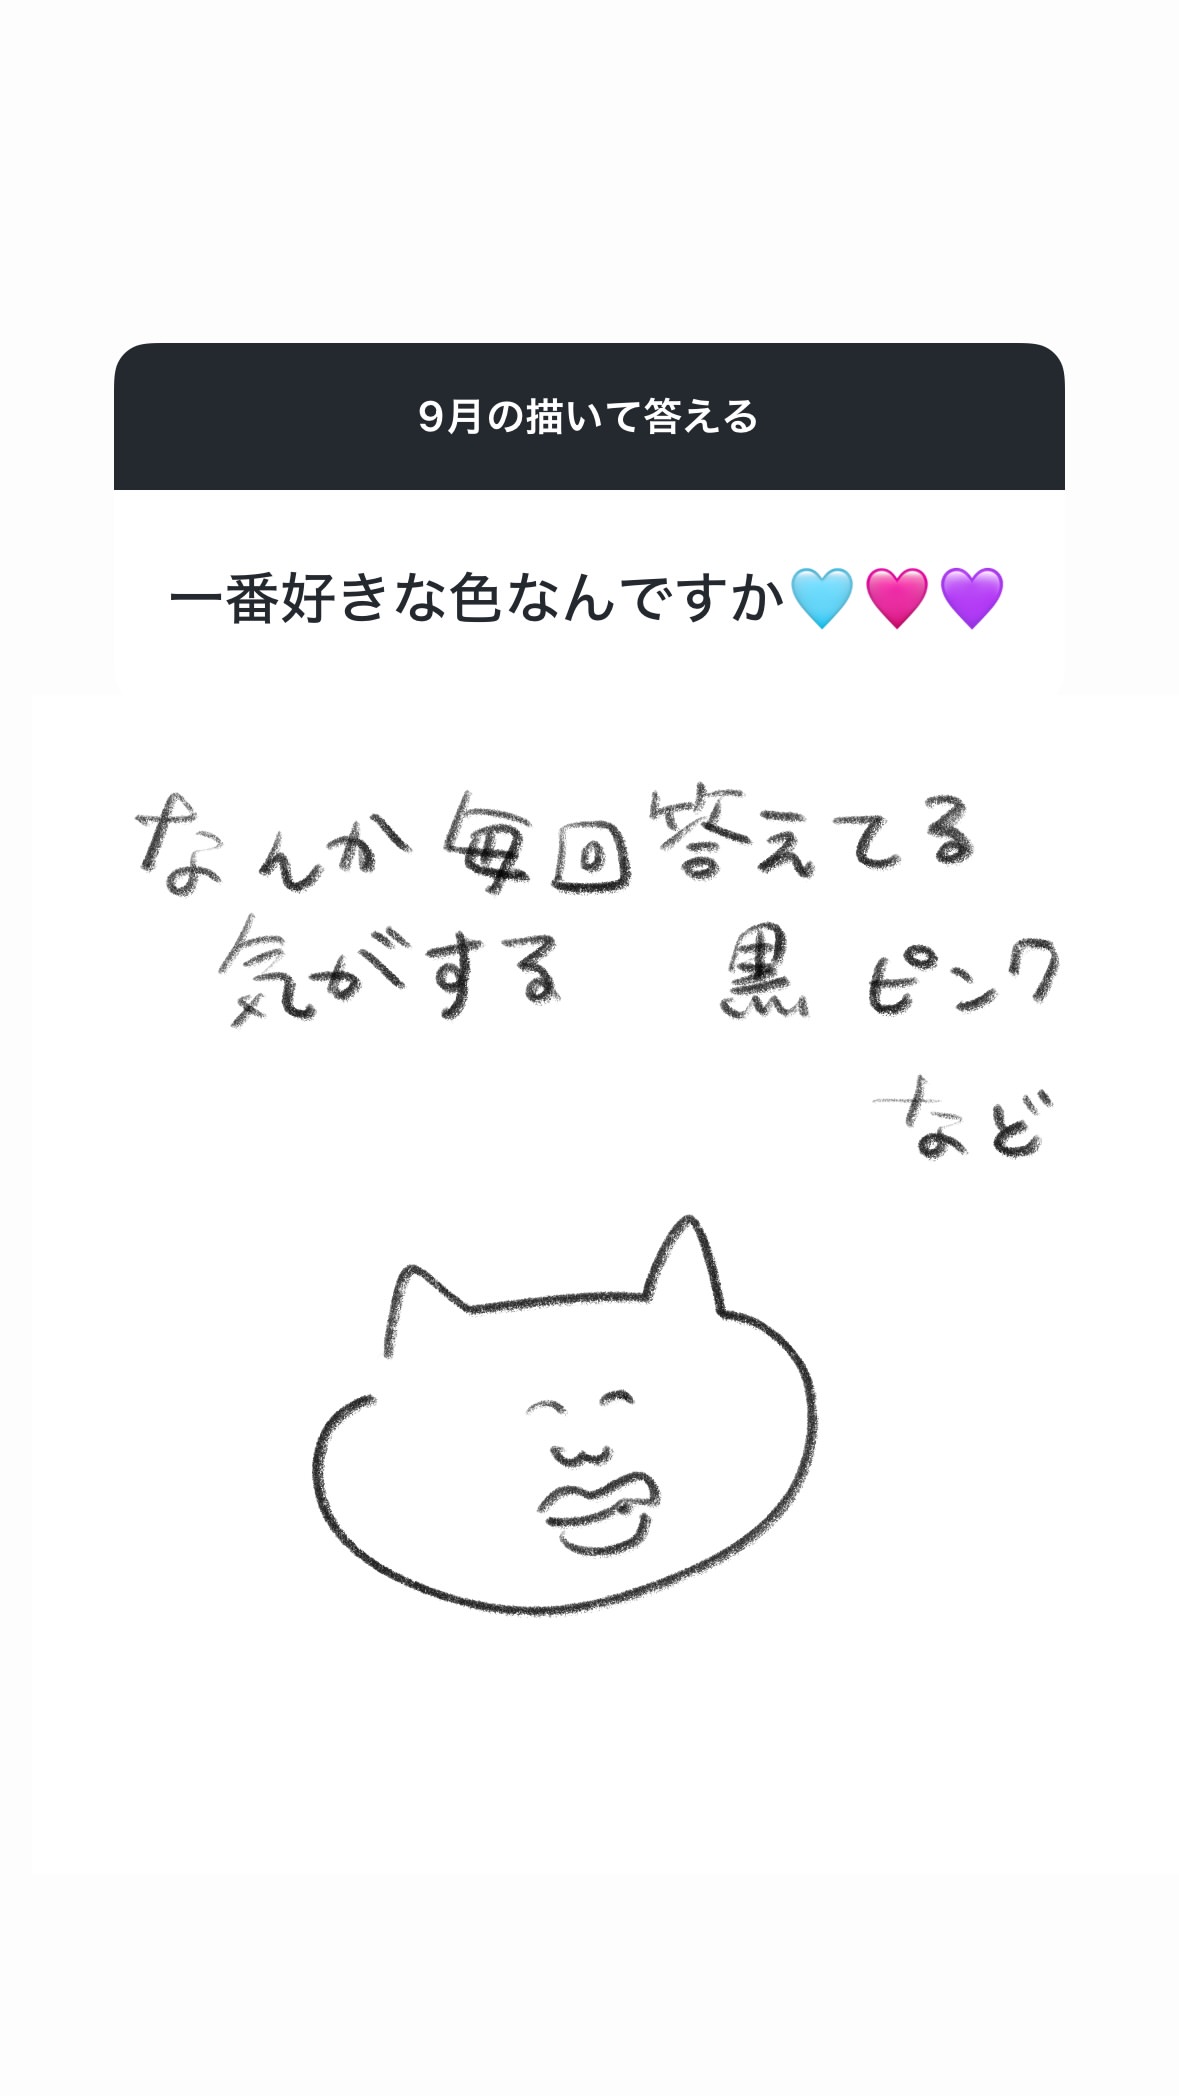 9月の描いて答える
一番好きな色なんですか🩵🩷💜
なんか毎回答えてる
気がする 黒 ピンク
など